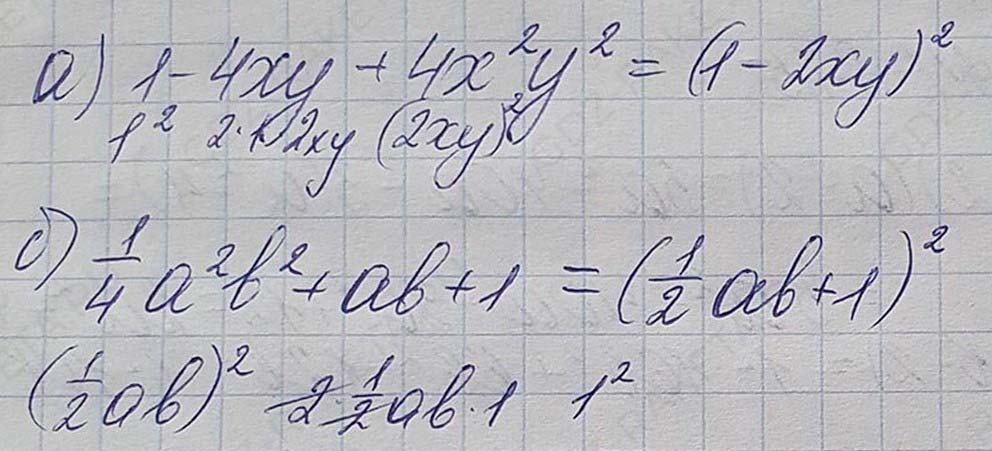 а) 1 - 4xy + 4x²y² = (1 - 2xy)²
1² 2·1·2xy (2xy)²
б) 1/4 a²b² + ab + 1 = (1/2 ab + 1)²
(1/2 ab)² 2·1/2 ab·1 1²